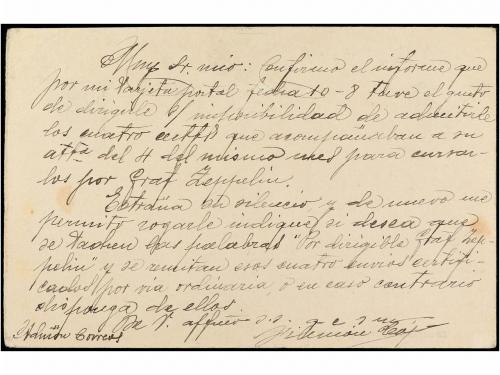 Muy Sr. mio: Confirmo el informe que
por mi tarjeta postal fecha 10-8 tuve el gusto
de dirigirle s/ imposibilidad de admitirle
los cuatro certfs que acompañaban a su
atta del 4 del mismo mes para cursar-
los por Graf Zeppelin.
Extraña su silencio y de nuevo me
permito rogarle indique si desea que
se tachen las palabras "Por dirigible Graf Zep-
pelin" y se remitan esos cuatro envios certifi-
cados por via ordinaria, o en caso contrario
disponga de ellos.
De V. affmo s.s. q e s m
Admón Correos